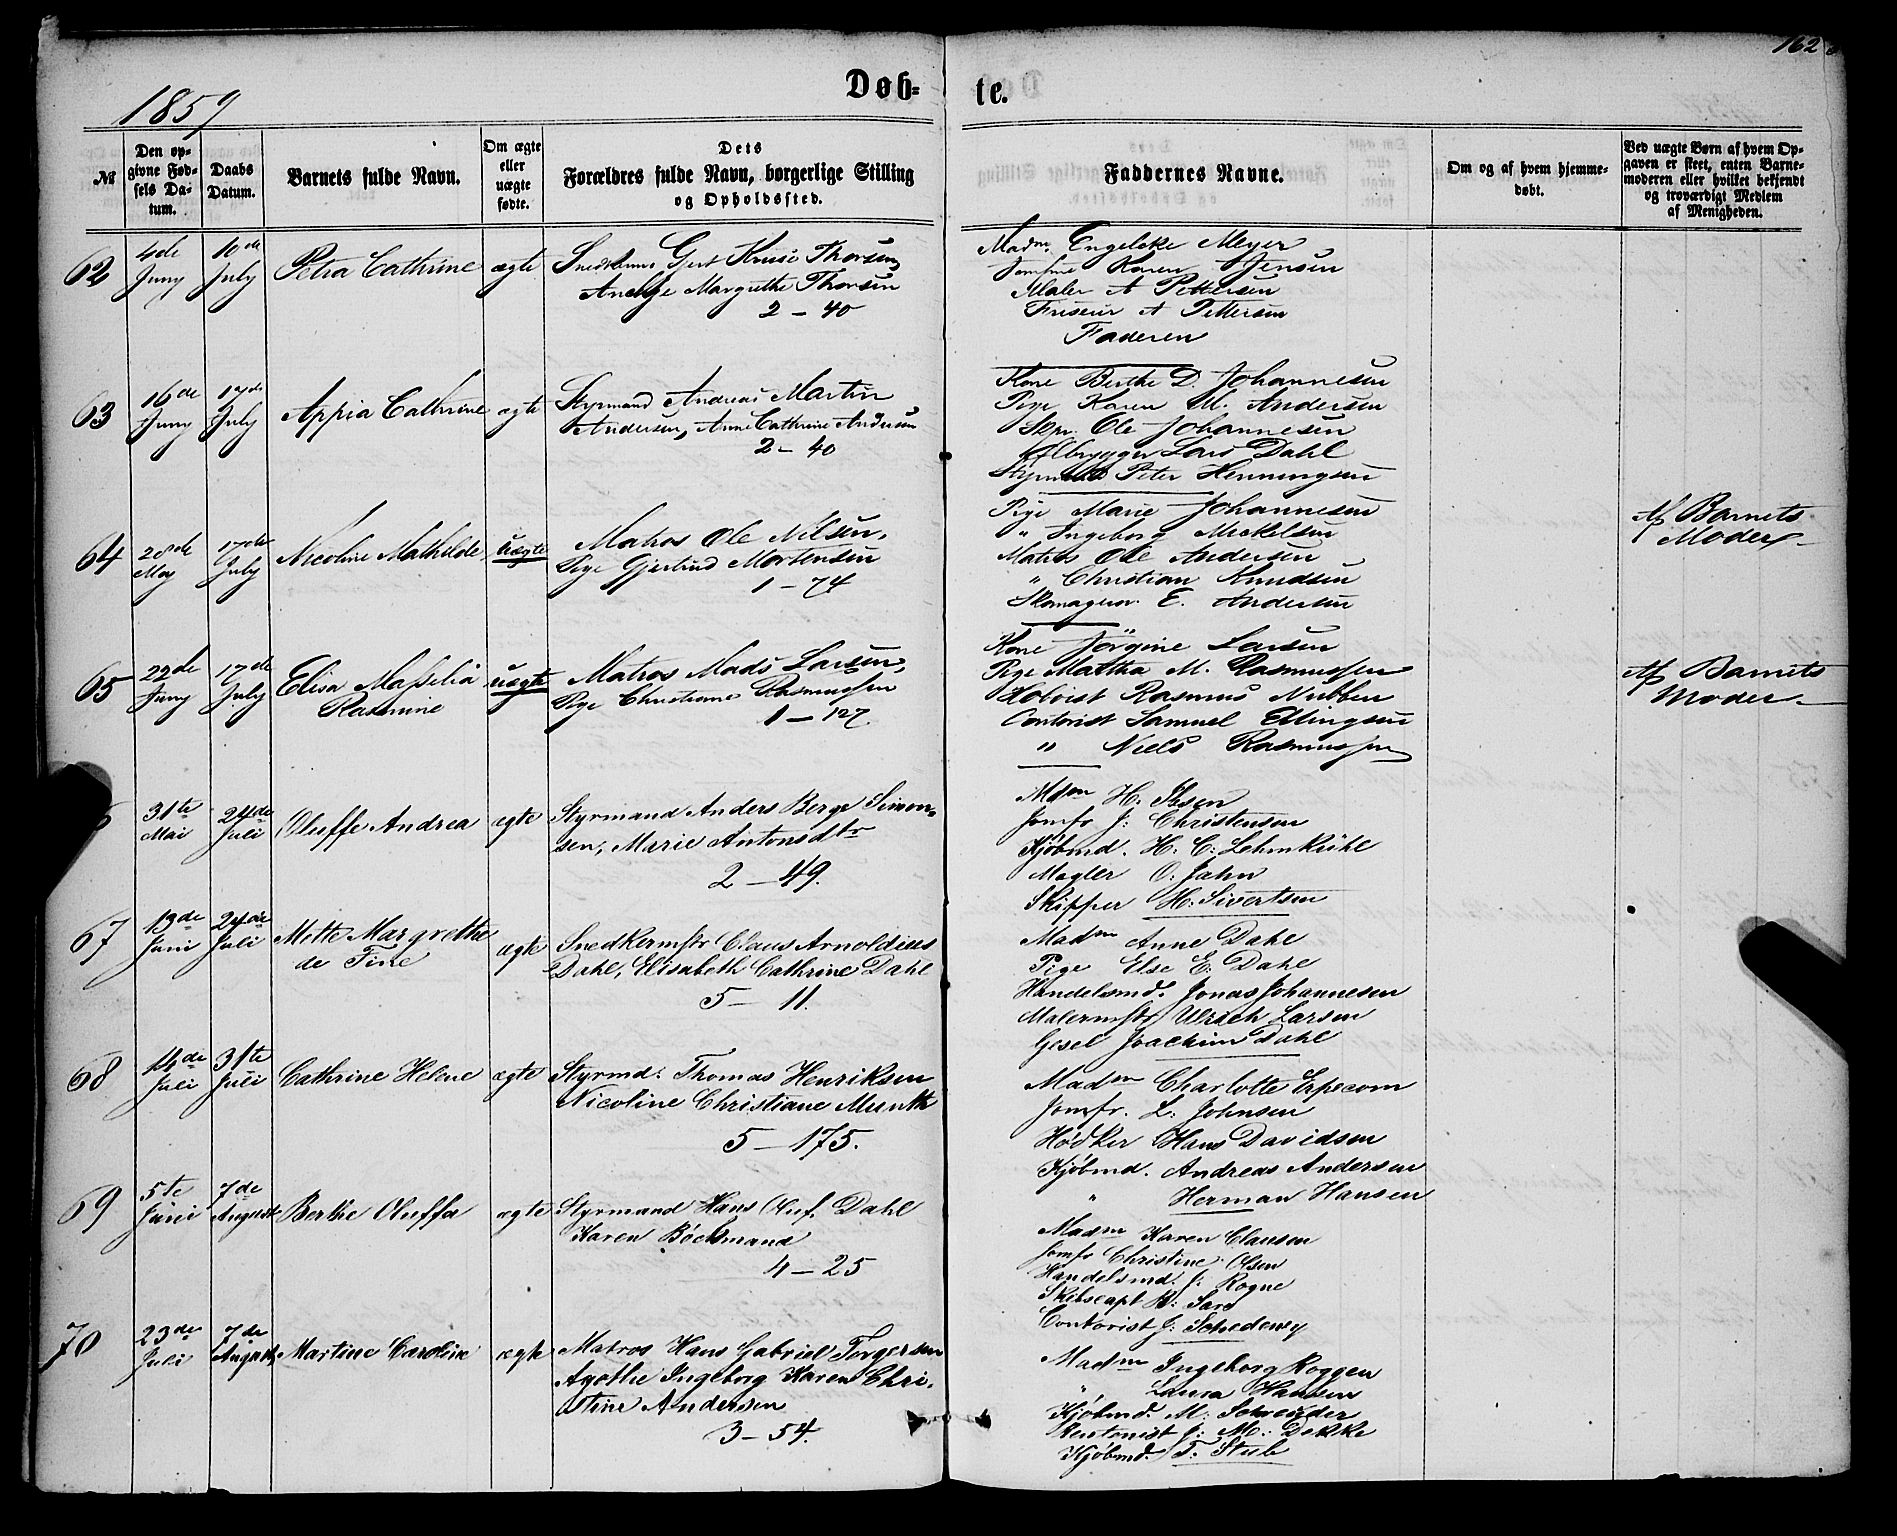 162
Døb=
te.
1859
№
Den op-
givne Fød-
sels Da-
tum.
Daabs
Datum.
Barnets fulde Navn.
Om ægte
eller
uægte
fødte.
Dets
Forældres fulde Navn, borgerlige Stilling
og Opholdssted.
Faddernes Navne.
Om og af hvem hjemme-
døbt.
Ved uægte Børn af hvem Op-
gaven er skeet, enten Barne-
moderen eller hvilket bekjendt
og troværdigt Medlem
af Menigheden.
62
4de
Juny
10de
July
Petra Cathrine
ægte
Gert Kruse Thorsen,
Margrethe Thorsen
2 – 40
Madm. Engelcke Meyer
Jomfrue Karen Jensen
Maler A Pettersen
Friseur A Pettersen
Faderen
63
16de
Juny
17de
July
Appia Cathrine
ægte
Styrmand Andreas Martin
Andersen, Anne Cathrine Andersen
2 – 40
Kone Berthe D. Johannesen
Pige Karen M. Andersen
Skpr. Ole Johannesen
Ølbrygger Lars Dahl
Styrmand Peter Henningsen
64
28de
May
17de
July
Nicoline Mathilde
uægte
Matros Ole Nilsen,
Pige Gjertrud Mortensen
1 – 74
Pige Marie Johannesen
" Ingeborg Mickelsen
Matros Ole Andersen
" Christian Knudsen
Skomagersv. E. Andersen
Af Barnets
Moder
65
22de
Juny
17de
July
Elisa Massilia
Rasmine
uægte
Matros Mads Larsen,
Pige Christiane Rasmussen
1 – 127.
Kone Jörgine Larsen
Pige Martha M. Rasmussen
Rasmus Nubben
Contorist Samuel Ellingsen
" Niels Rasmussen
Af Barnets
Moder
31te
Mai
24de
Juli
Oluffe Andrea
ægte
Styrmand Anders Berge Simon-
sen, Marie Antonsdtr
2 – 49.
Mdm H. Ibsen
Jomfr J: Christensen
Kjöbmd. H. C: Lehmkühl
Mægler O. Jahn
Skipper H. Sivertsen
67
13de
Juni
24de
Juli
Mette Margrethe
de Fine
ægte
Snedkermstr Claus Arnoldius
Dahl, Elisabeth Cathrine Dahl
5 – 11.
Madm Anne Dahl
Pige Else E. Dahl
Handelsmd. Jonas Johannesen
Malermstr Ulrich Larsen
Gesel Joachim Dahl
68
14de
Juli
31te
Juli
Cathrine Helene
ægte
Styrmd. Thomas Henriksen
Nicoline Christiane Munth
5 – 175.
Madm Charlotte Erpecom
Jomfr. L: Johnsen
Hödker Hans Davidsen
Kjöbmd. Andreas Andersen
" Herman Hansen
69
5te
Juni
7de
August
Berthe Oluffa
ægte
Styrmand Hans Oluf Dahl
Karen Böckmand
4 – 25
Madm Karen Clausen
Jomfr Christine Olsen
Handelsmd. J: Rogne
Skibscapt
Contorist J:
70
23de
Juli
7de
August
Martine Caroline
ægte
Matros Hans Gabriel Torgersen
Agothe Ingeborg Karen Chri-
stine Andersen
3 – 54.
Madm Ingeborg Roggen
" Laura Hansen
Kjöbmd. M: Schreuder
J: M: Dekke
Kjöbmd. T. Stub